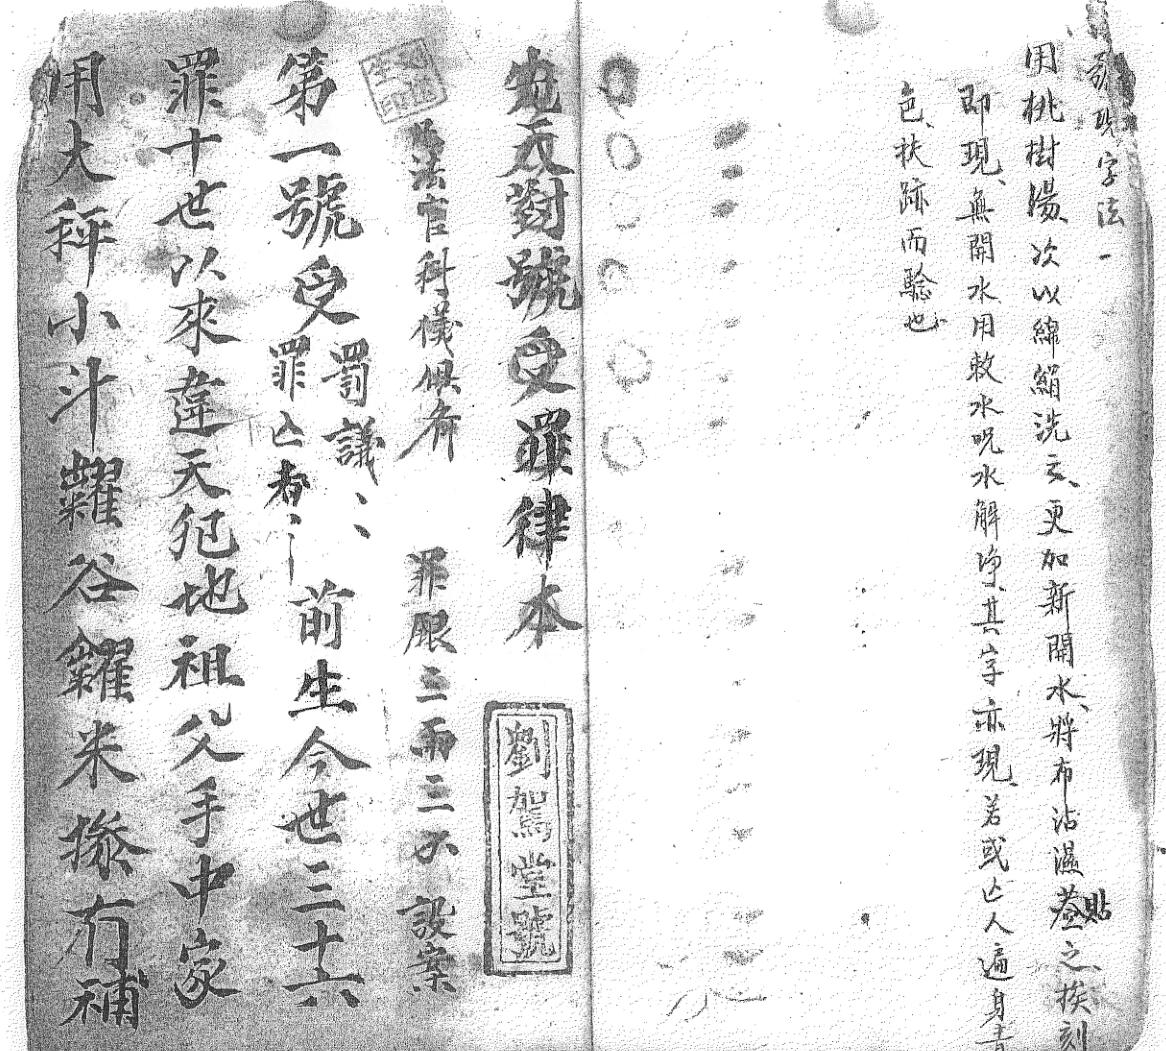 發現字法一
用桃樹湯、次以綿絹洗云、更加新開水、將布沾濕蓋貼之、挨刻
即現、無開水用敕水呪水解净、其字亦現、若或亡人遍身青
色、扶跡而驗也
先天對號受罪律本
劉駕堂號
法官科儀俱齊 罪眼三兩三 設案
第一號受罰議罪亡者 前生今世三十六
罪十世以來違天犯地祖父手中家
用大秤小斗糶谷糴米摻冇補